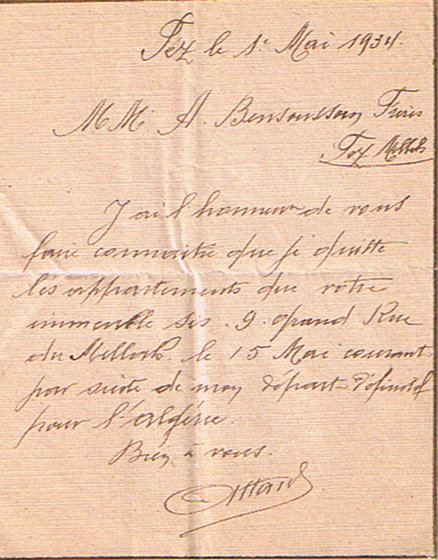 Féz le 1er Mai 1934.
MM A. Bensoussan Frères
Fez Mellah
J'ai l'honneur de vous
faire connaitre que je quitte
les appartements que votre
immeuble sis. 9. grand Rue
du Mellah. le 15 Mai courant
par suite de mon départ définitif
pour l'algérie.
Bien à vous.